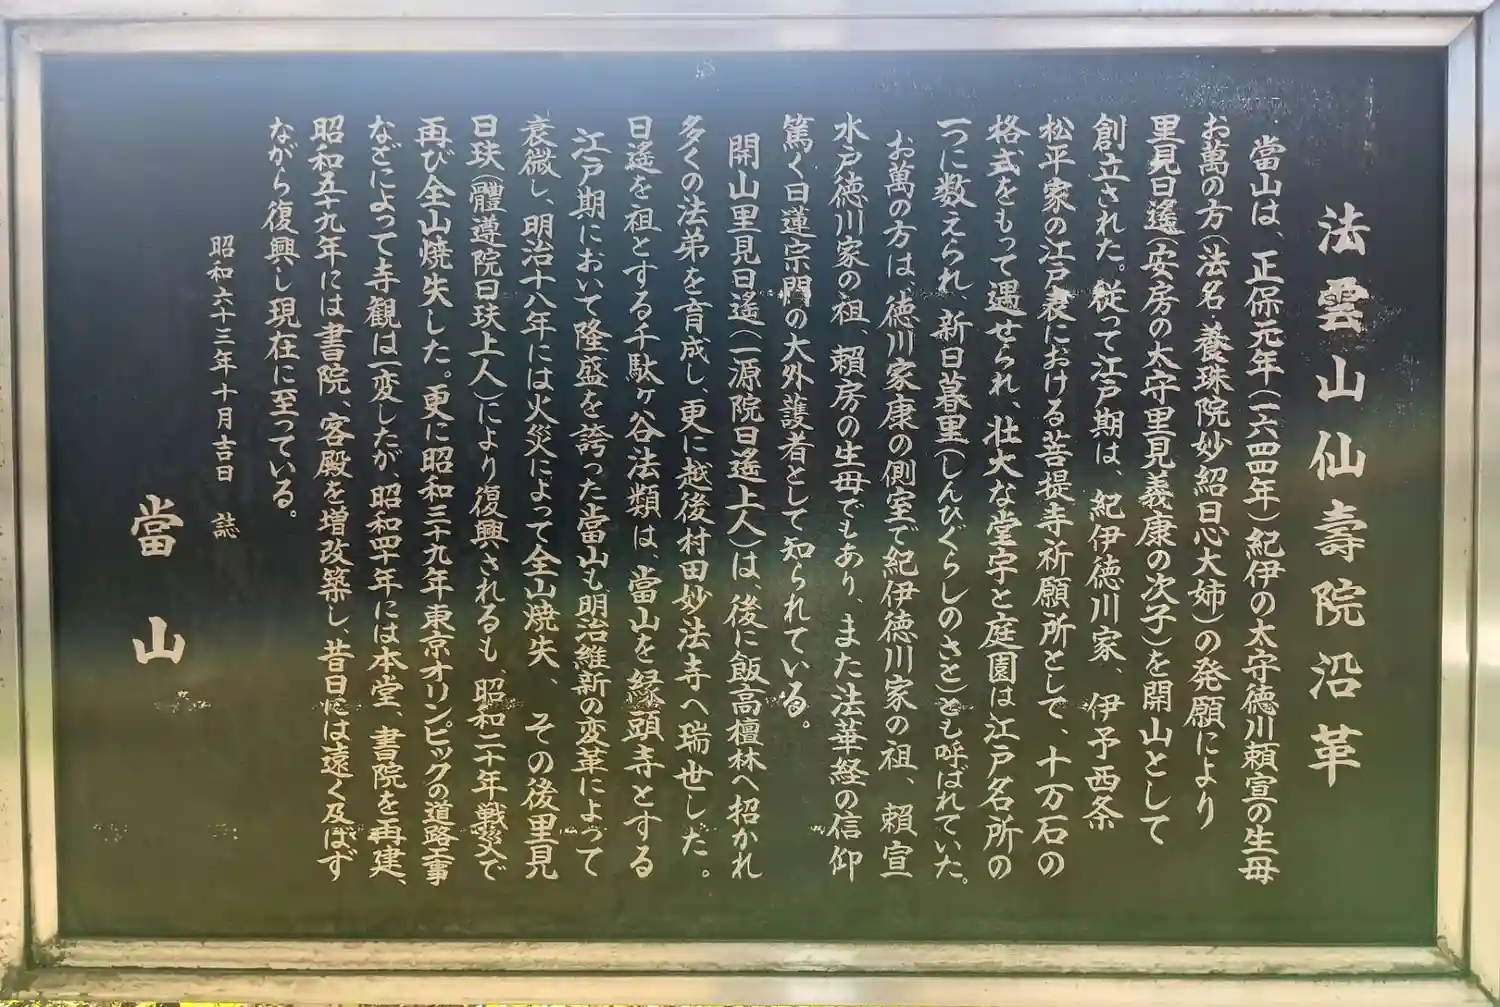 法雲山仙壽院沿革
當山は、正保元年(一六四四年)紀伊の太守徳川頼宣の生母
お萬の方(法名・養珠院妙紹日心大姉)の発願により
里見日遙(安房の太守里見義康の次子)を開山として
創立された。従って江戸期は、紀伊徳川家、伊予西条
松平家の江戸表における菩提寺祈願所として、十万石の
格式をもって遇せられ、壮大な堂宇と庭園は江戸名所の
一つに数えられ、新日暮里(しんひぐらしのさと)とも呼ばれていた。
お萬の方は、徳川家康の側室で紀伊徳川家の祖、頼宣
水戸徳川家の祖、頼房の生母でもあり、また法華経の信仰
篤く日蓮宗門の大外護者として知られている。
開山里見日遙(一源院日遙上人)は、後に飯高檀林へ招かれ
多くの法弟を育成し、更に越後村田妙法寺へ瑞世した。
日遙を祖とする千駄ヶ谷法類は、當山を経頭寺とする
江戸期において隆盛を誇った當山も明治維新の変革によって
衰微し、明治十八年には火災によって全山焼失、その後里見
日玞(體遵院日玞上人)により復興されるも昭和二十年戦災で
再び全山焼失した。更に昭和三十九年東京オリンピックの道路工事
などによって寺観は一変したが、昭和四十年には本堂、書院を再建、
昭和五十九年には書院、客殿を増改築し、昔日には遠く及ばず
ながら復興し現在に至っている。
昭和六十三年十月吉日 誌
當山